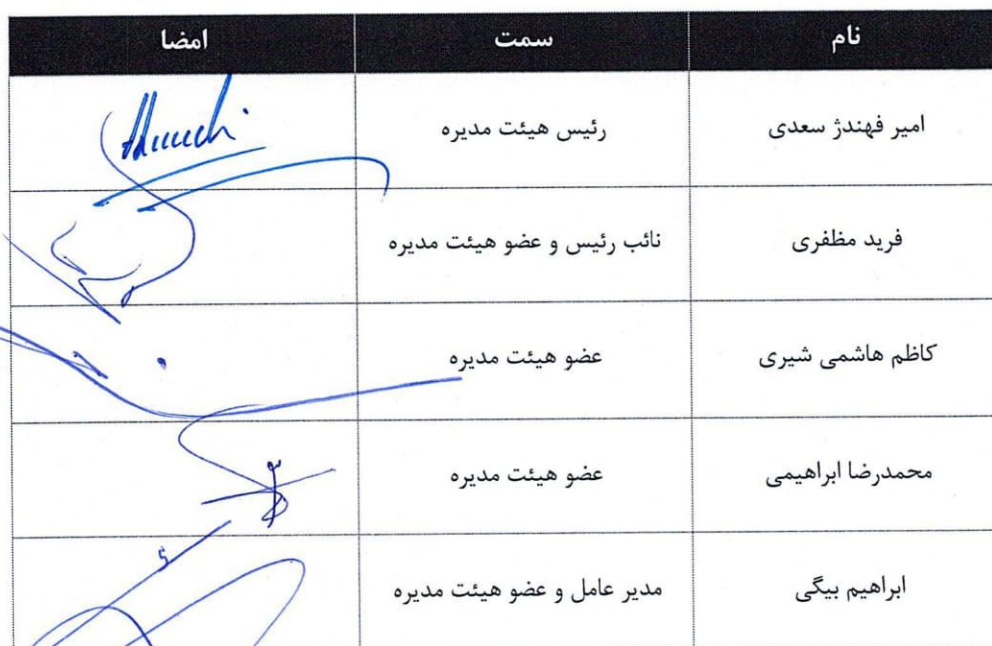 نام سمت امضا
امیر فهندژ سعدی رئیس هیئت مدیره
فرید مظفری نائب رئیس و عضو هیئت مدیره
کاظم هاشمی شیری عضو هیئت مدیره
محمدرضا ابراهیمی عضو هیئت مدیره
ابراهیم بیگی مدیر عامل و عضو هیئت مدیره